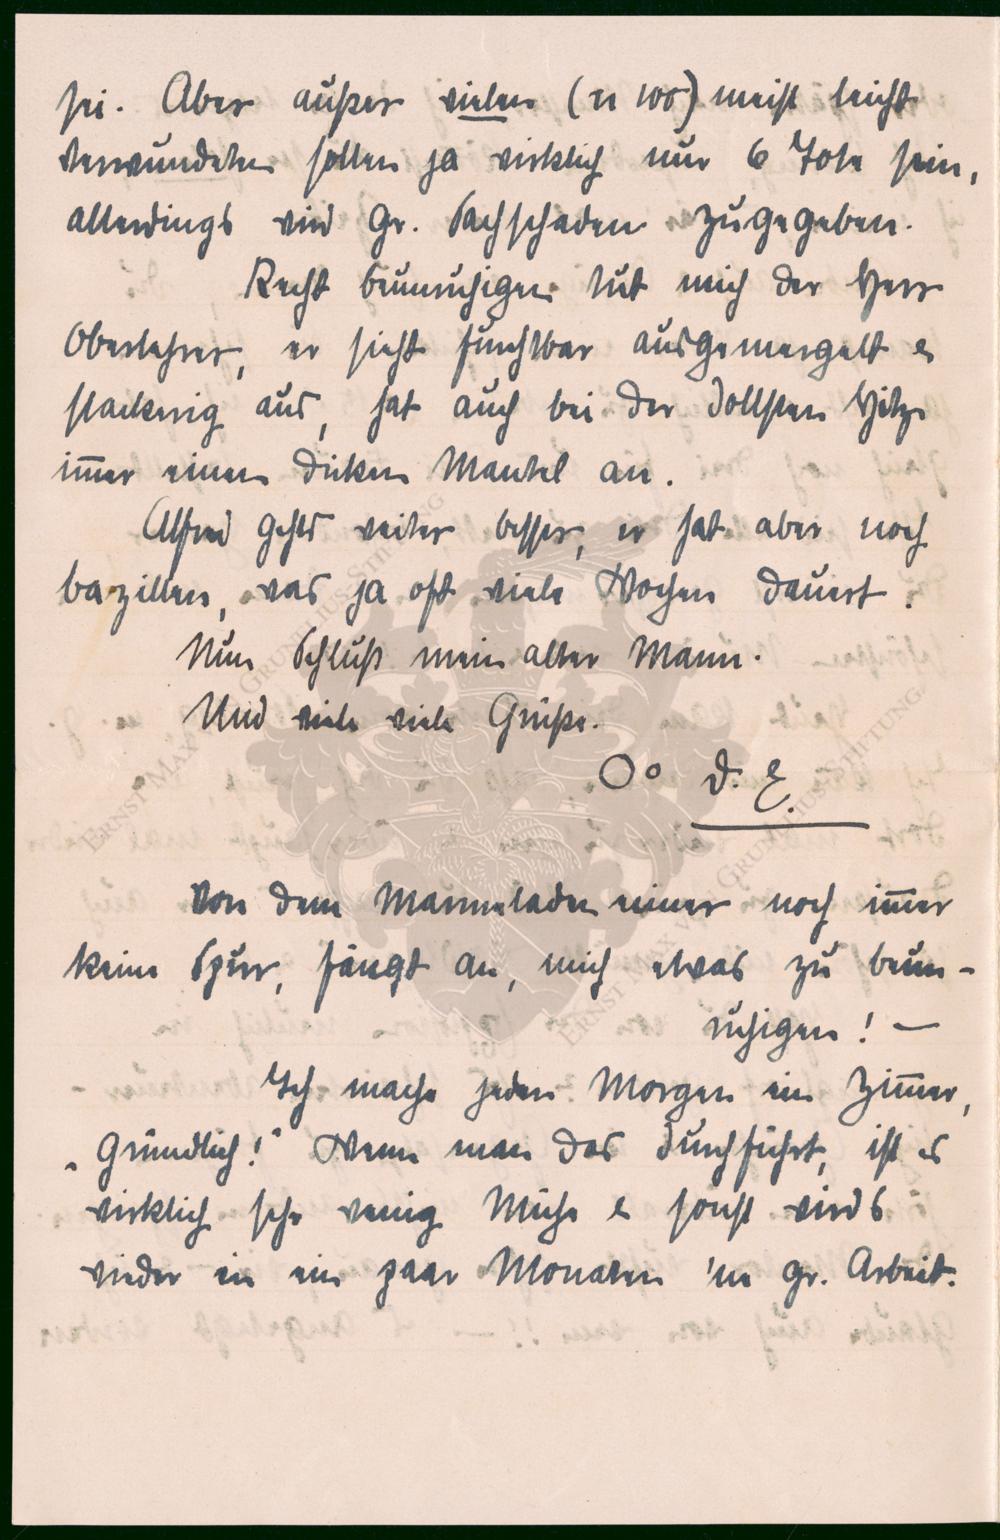 sei. Aber außer vielen (n 100) meist leicht
Verwundeten sollen ja wirklich nur 6 Tote sein,
allerdings wird gr. Sachschaden zugegeben.
Recht beunruhigen tut mich der Herr
Oberlehrer, er sieht furchtbar ausgemergelt &
stackerig aus, hat auch bei der dollsten Hitze
im̅er einen dicken Mantel an.
Alfred gehts weiter besser, er hat aber noch
bazillen, was ja oft viele Wochen dauert.
Nun Schluß mein alter Mann.
Und viele viele Grüße.
O° d. E.
Von dem Marmeladeneimer noch im̅er
keine Spur, fängt an, mich etwas zu beun-
ruhigen! —
Ich mache jeden Morgen ein Zim̅er,
„Gründlich!" Wenn man das durchführt, ist es
wirklich sehr wenig Mühe & sonst wirds
wieder in ein paar Monaten 'ne gr. Arbeit.
ERNST MAX VON GRUNELIUS-STIFTUNG
ERNST MAX VON GRUNELIUS-STIFTUNG